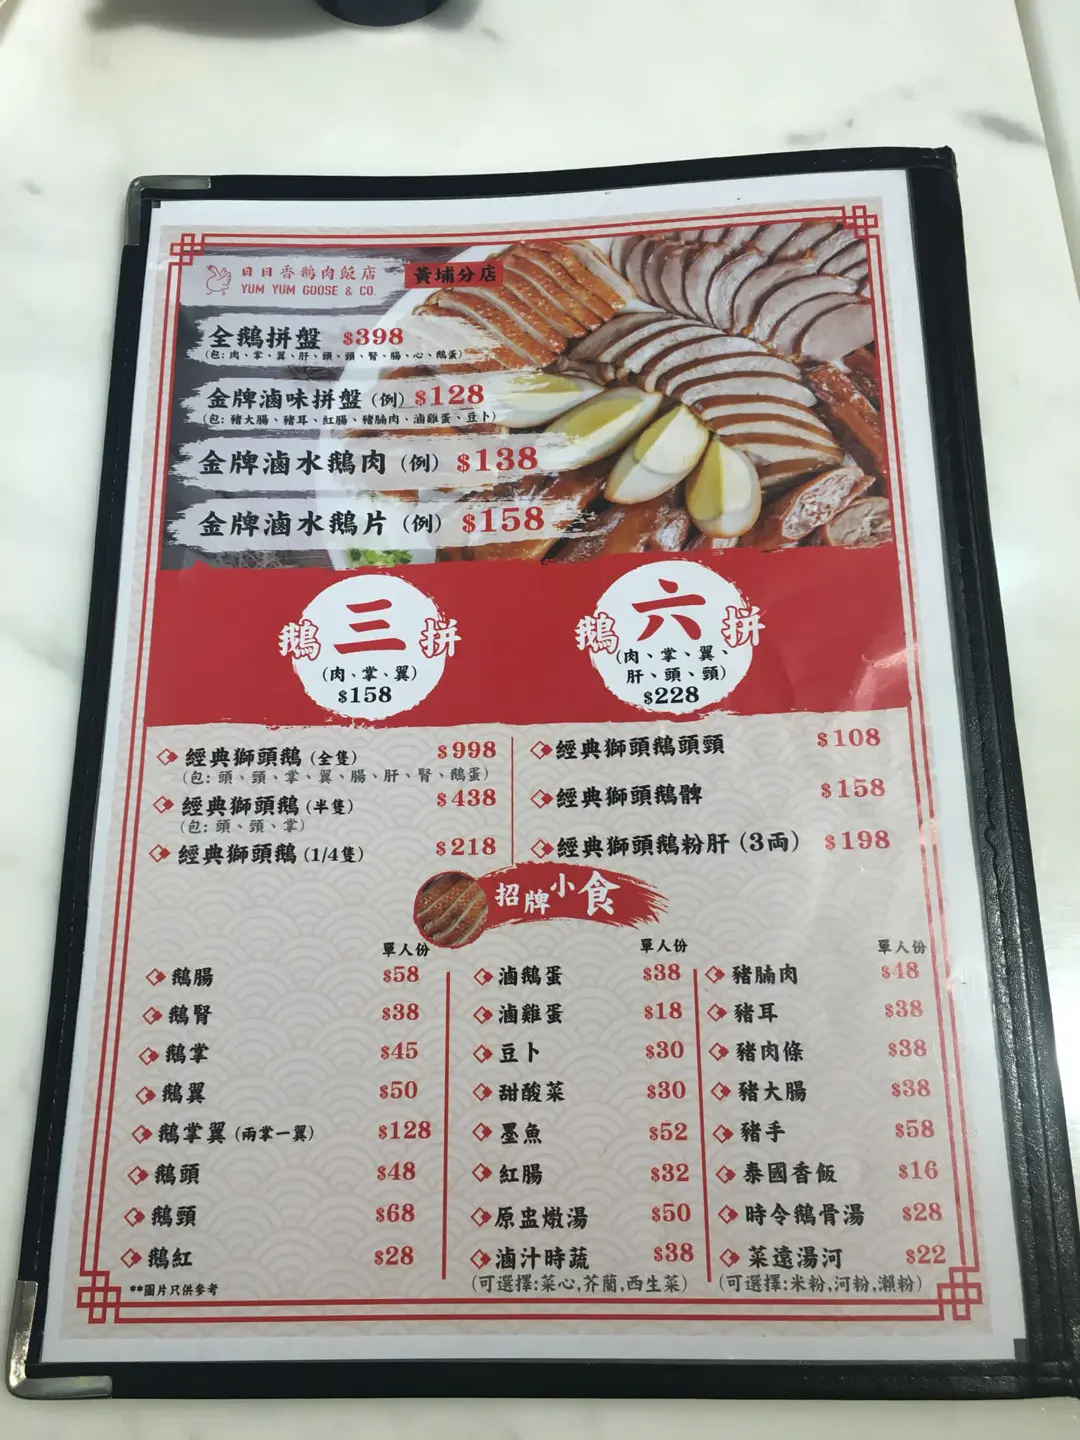 日日香鵝肉飯店 黃埔分店
YUM YUM GOOSE & CO.
全鵝拼盤 $398
(包: 肉、掌、翼、肝、頭、頸、腎、腸、心、鵝蛋)
金牌滷味拼盤 (例) $128
(包: 豬大腸、豬耳、紅腸、豬腩肉、滷雞蛋、豆卜)
金牌滷水鵝肉 (例) $138
金牌滷水鵝片 (例) $158
鵝三拼
(肉、掌、翼)
$158
鵝六拼
(肉、掌、翼、
肝、頭、頸)
$228
經典獅頭鵝 (全隻) $998
(包: 頭、頸、掌、翼、腸、肝、腎、鵝蛋)
經典獅頭鵝 (半隻) $438
(包: 頭、頸、掌)
經典獅頭鵝 (1/4隻) $218
經典獅頭鵝頭頸 $108
經典獅頭鵝髀 $158
經典獅頭鵝粉肝 (3両) $198
招牌小食
單人份
鵝腸 $58
鵝腎 $38
鵝掌 $45
鵝翼 $50
鵝掌翼 (兩掌一翼) $128
鵝頭 $48
鵝頸 $68
鵝紅 $28
**圖片只供參考
單人份
滷鵝蛋 $38
滷雞蛋 $18
豆卜 $30
甜酸菜 $30
墨魚 $52
紅腸 $32
原盅燉湯 $50
滷汁時蔬 $38
(可選擇:菜心,芥蘭,西生菜)
單人份
豬腩肉 $48
豬耳 $38
豬肉條 $38
豬大腸 $38
豬手 $58
泰國香飯 $16
時令鵝骨湯 $28
菜遠湯河 $22
(可選擇:米粉,河粉,瀨粉)